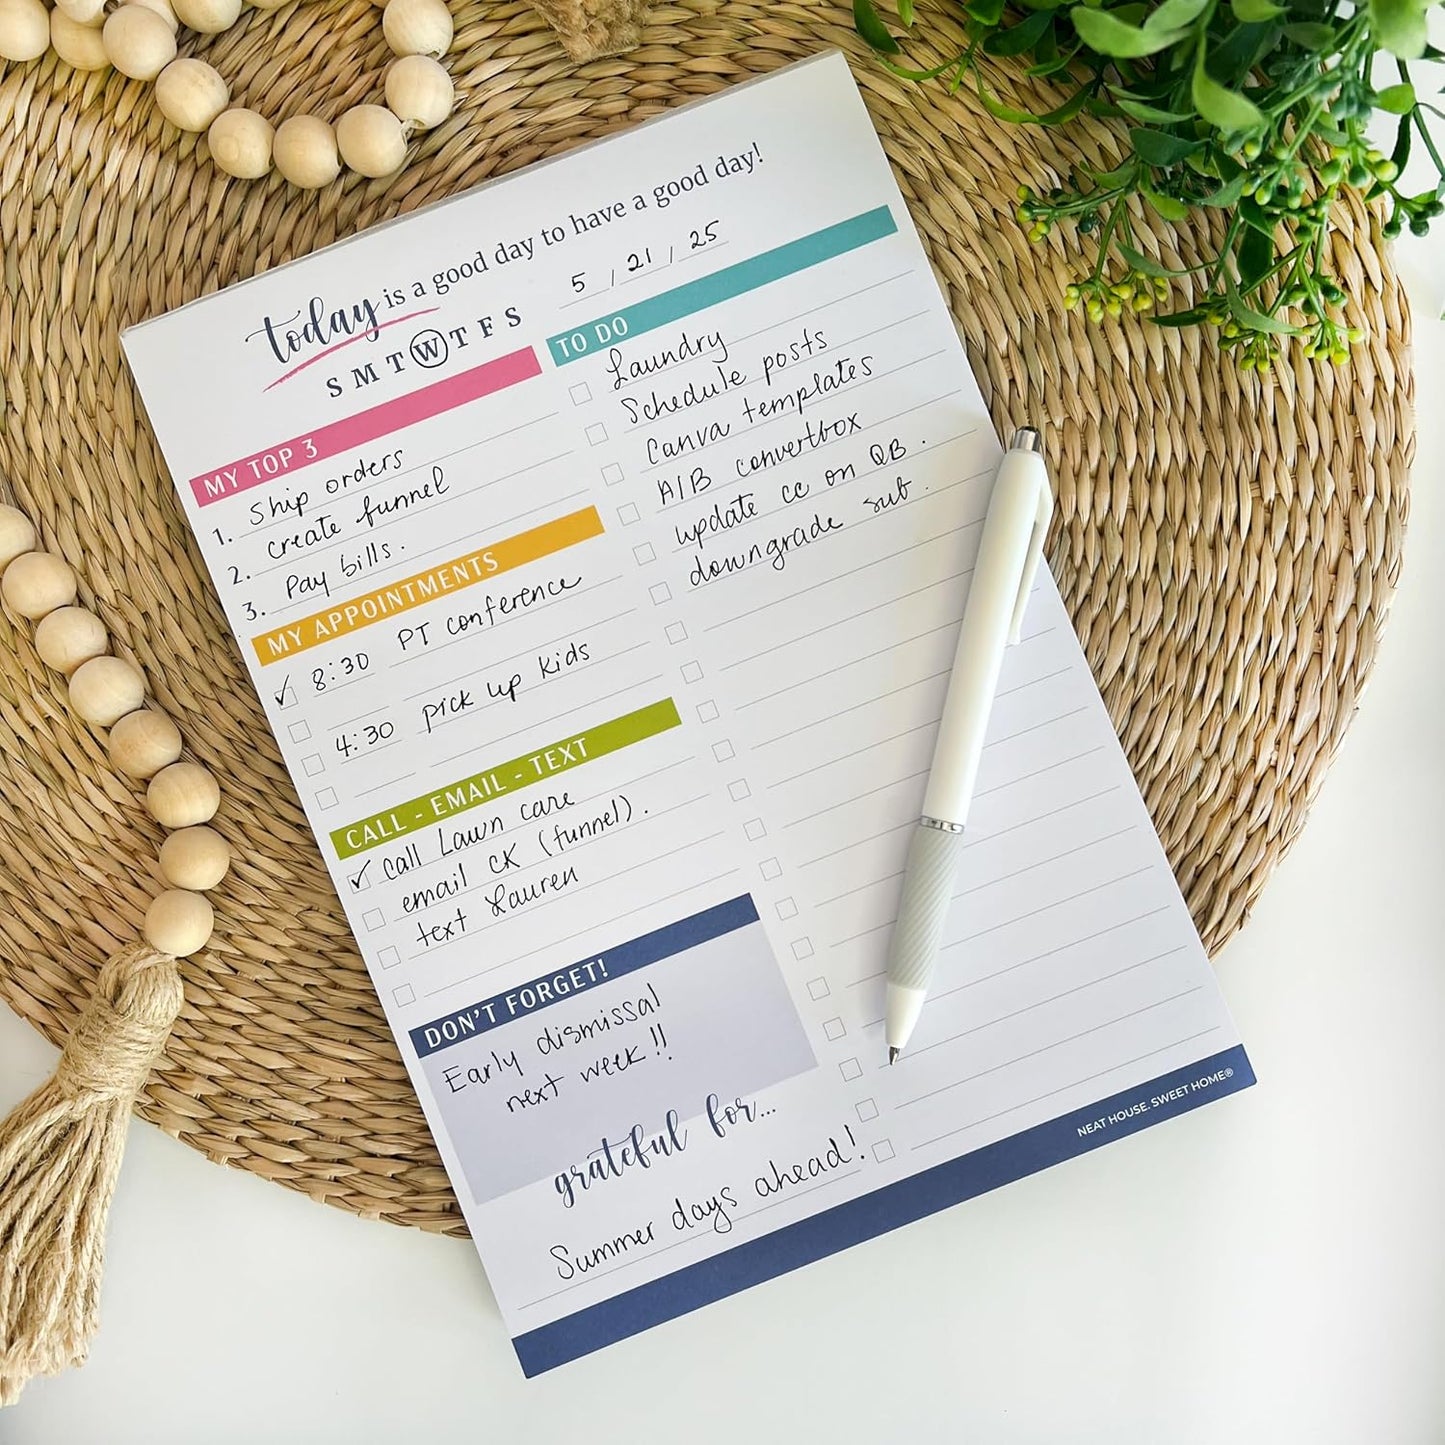 today is a good day to have a good day!
S M T W T F S
5 / 21 / 25
MY TOP 3
1. Ship orders
2. create funnel
3. Pay bills.
MY APPOINTMENTS
✓ 8:30 PT conference
4:30 pick up kids
CALL - EMAIL - TEXT
✓ call Lawn care
email CK (funnel).
text Lauren
DON'T FORGET!
Early dismissal
next week!!
grateful for...
Summer days ahead!
TO DO
Laundry
Schedule posts
Canva templates
A/B convertbox
update cc on QB.
downgrade sub.
NEAT HOUSE. SWEET HOME®